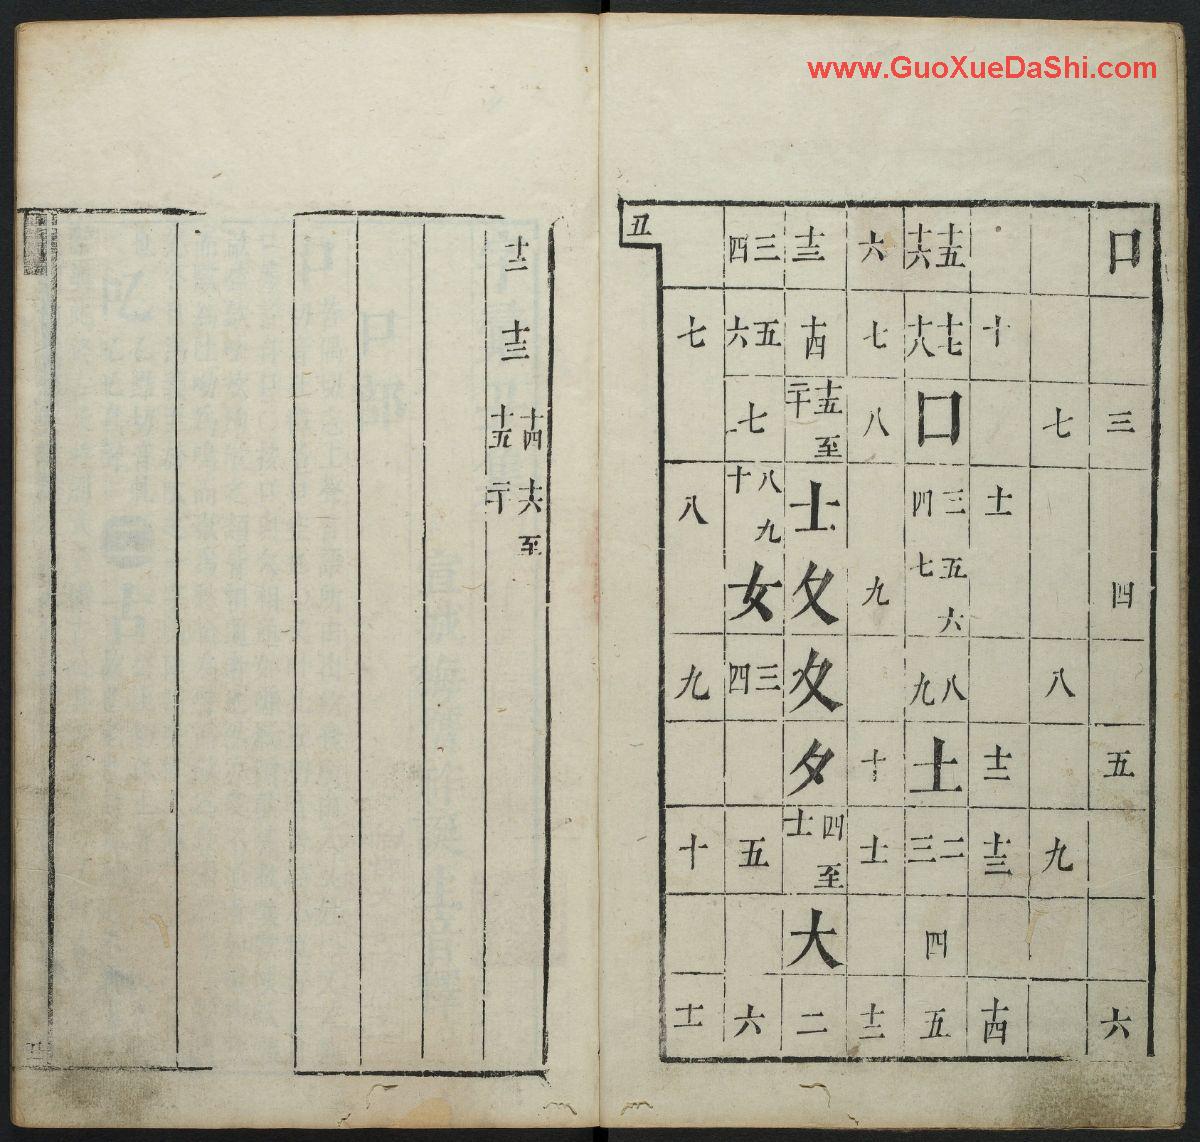 www.GuoXueDaShi.com
口 三 四 五 六
七 八 九
十 十一 十二 十三 十四
十五 十六 十七 十八 囗 三 四 五 六 七 八 九 土 二 三 四 五
六 七 八 九 十 十一 十二
十三 十四 十五至二十 士 夂 夊 夕 四至十一 大 二
三 四 五 六 七 八 九 十 女 三 四 五 六
七 八 九 十 十一
丑
十二 十三 十四 十五 十六至二十